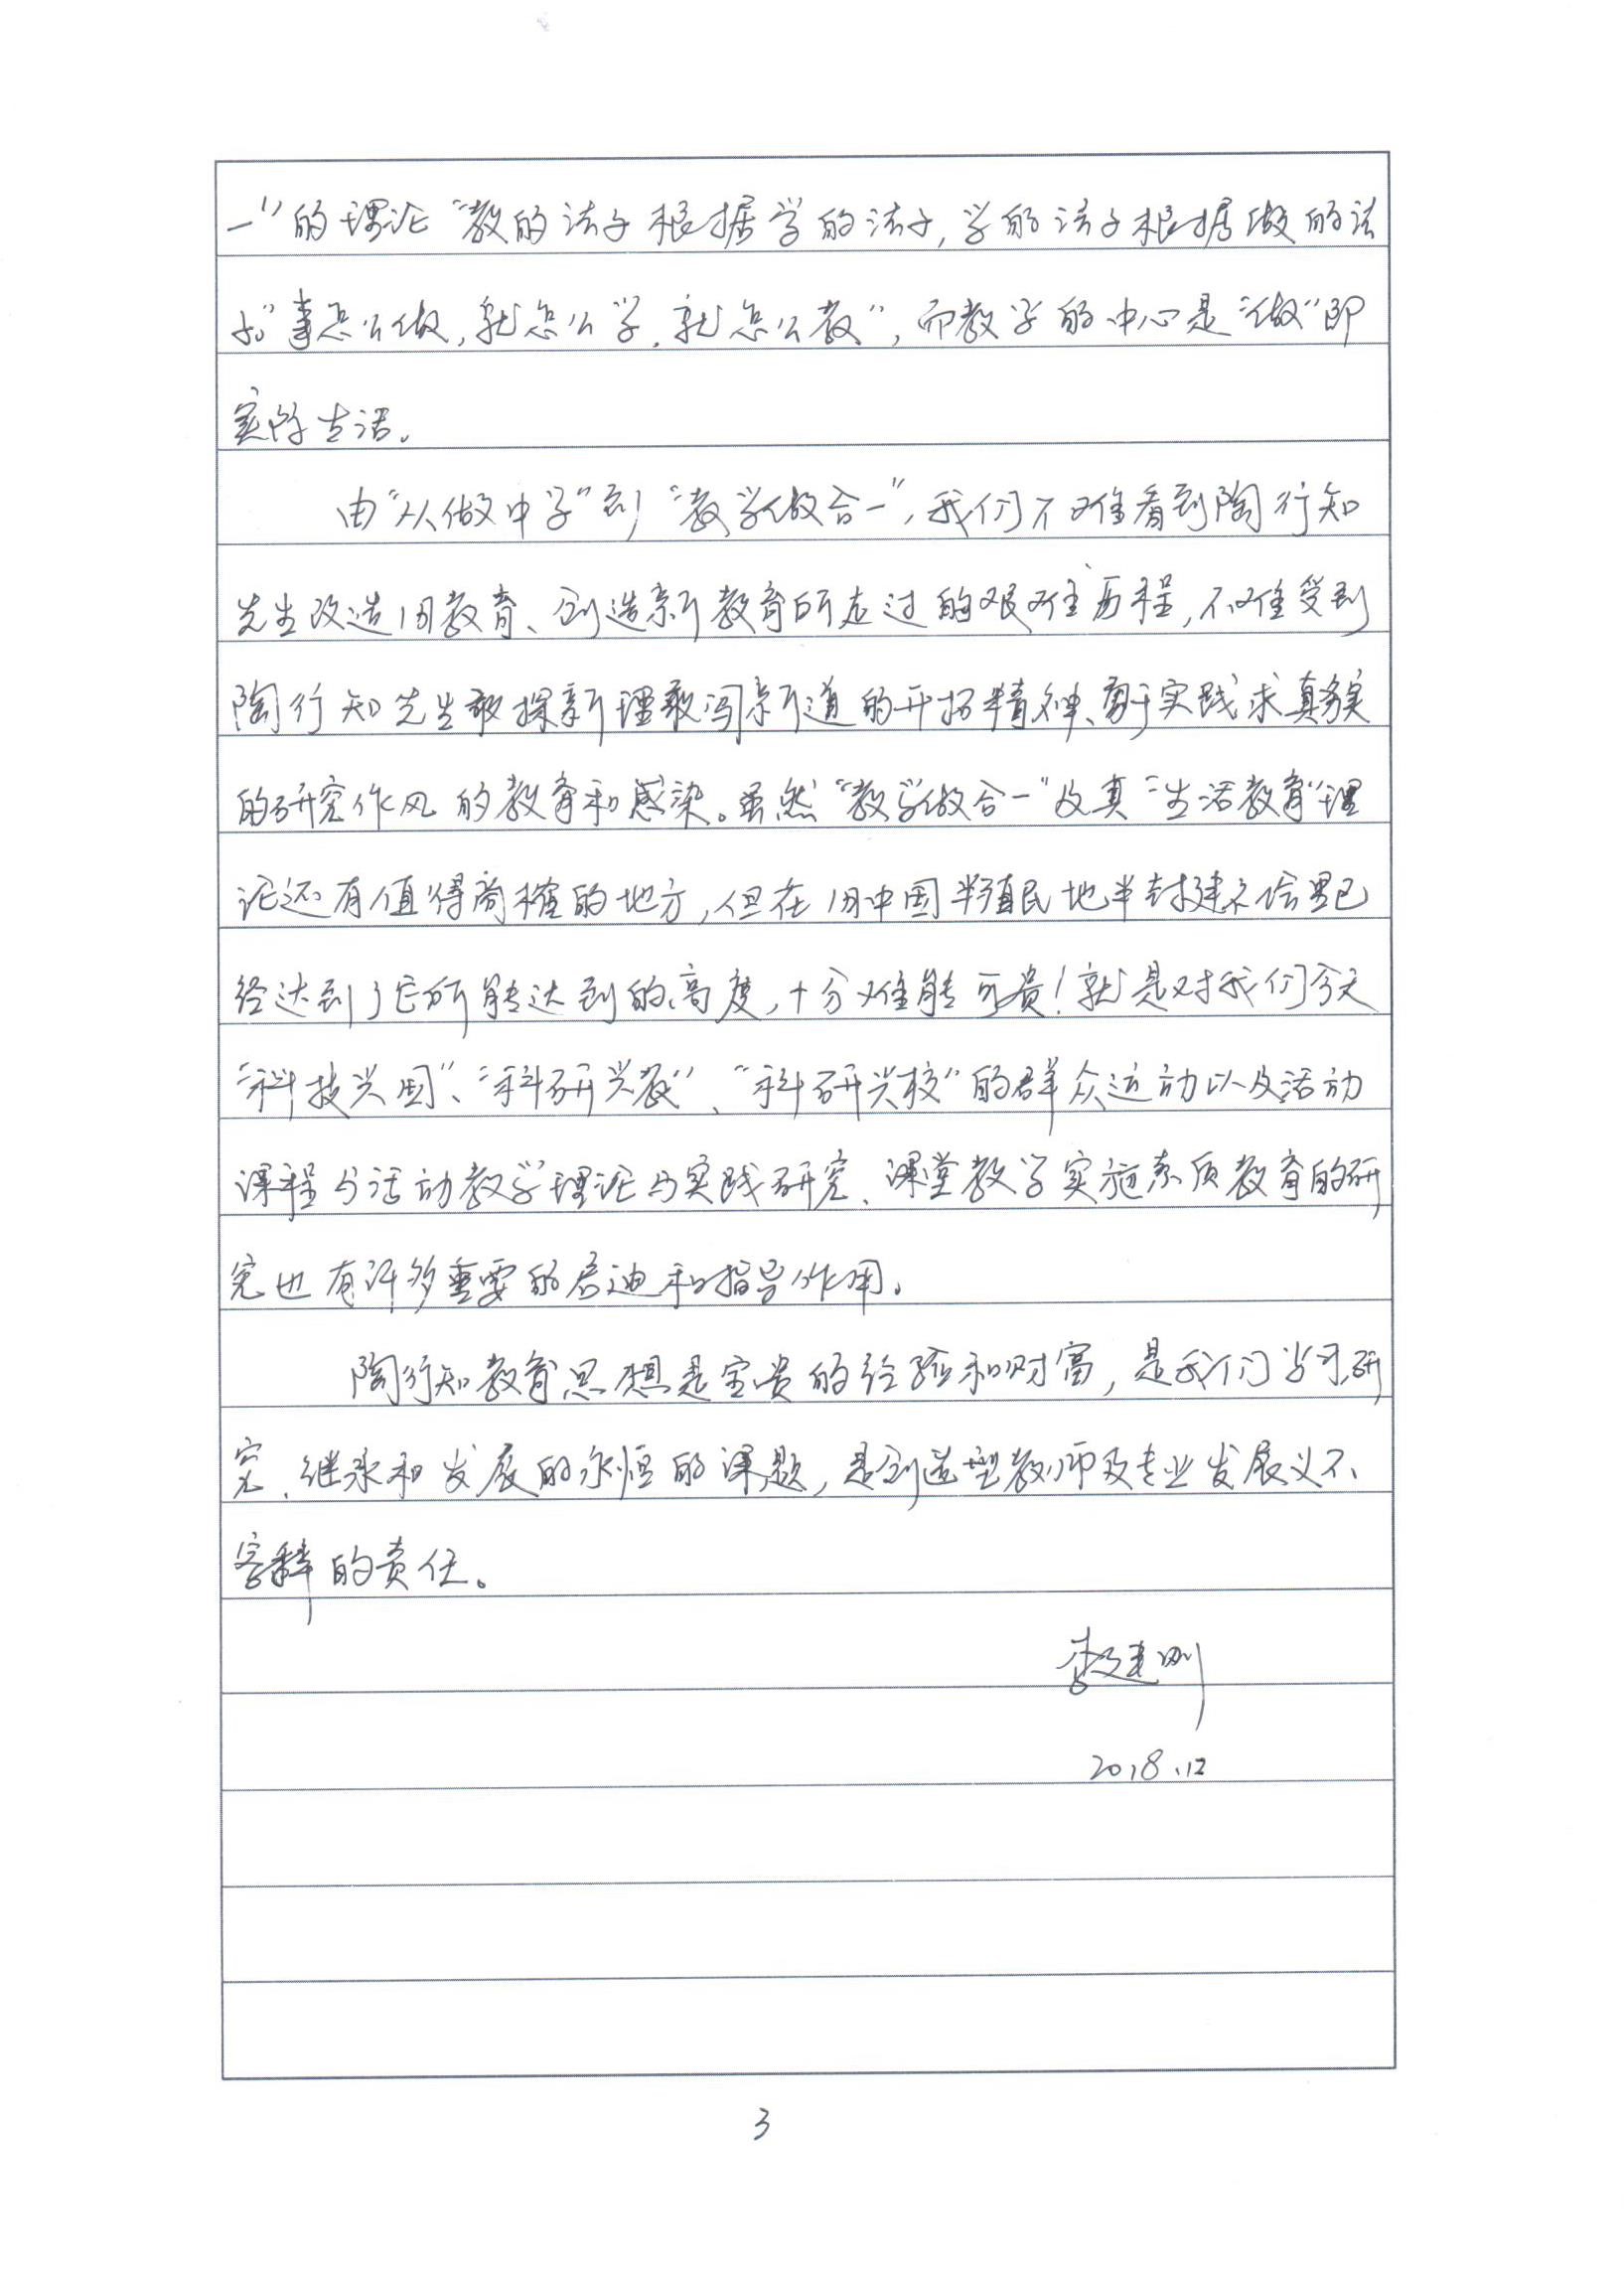 一”的理论“教的法子根据学的法子,学的法子根据做的法
子。”事怎么做,就怎么学,就怎么教”,而教学的中心是“做”即
实际生活。
由“从做中学”到“教学做合一”,我们不难看到陶行知
先生改造旧教育、创造新教育所走过的艰难历程,不难受到
陶行知先生敢探新理敢闯新道的开拓精神、勇于实践求真务实
的研究作风的教育和感染。虽然“教学做合一”及其“生活教育”理
论还有值得商榷的地方,但在旧中国半殖民地半封建社会里已
经达到了它所能达到的高度,十分难能可贵!就是对我们今天
“科技兴国”、“科研兴教”、“科研兴校”的群众运动以及活动
课程与活动教学理论与实践研究、课堂教学实施素质教育的研
究也有许多重要的启迪和指导作用。
陶行知教育思想是宝贵的经验和财富,是我们学习、研
究、继承和发展的永恒的课题,是创造型教师及专业发展义不
容辞的责任。
建刚
2018.12
3